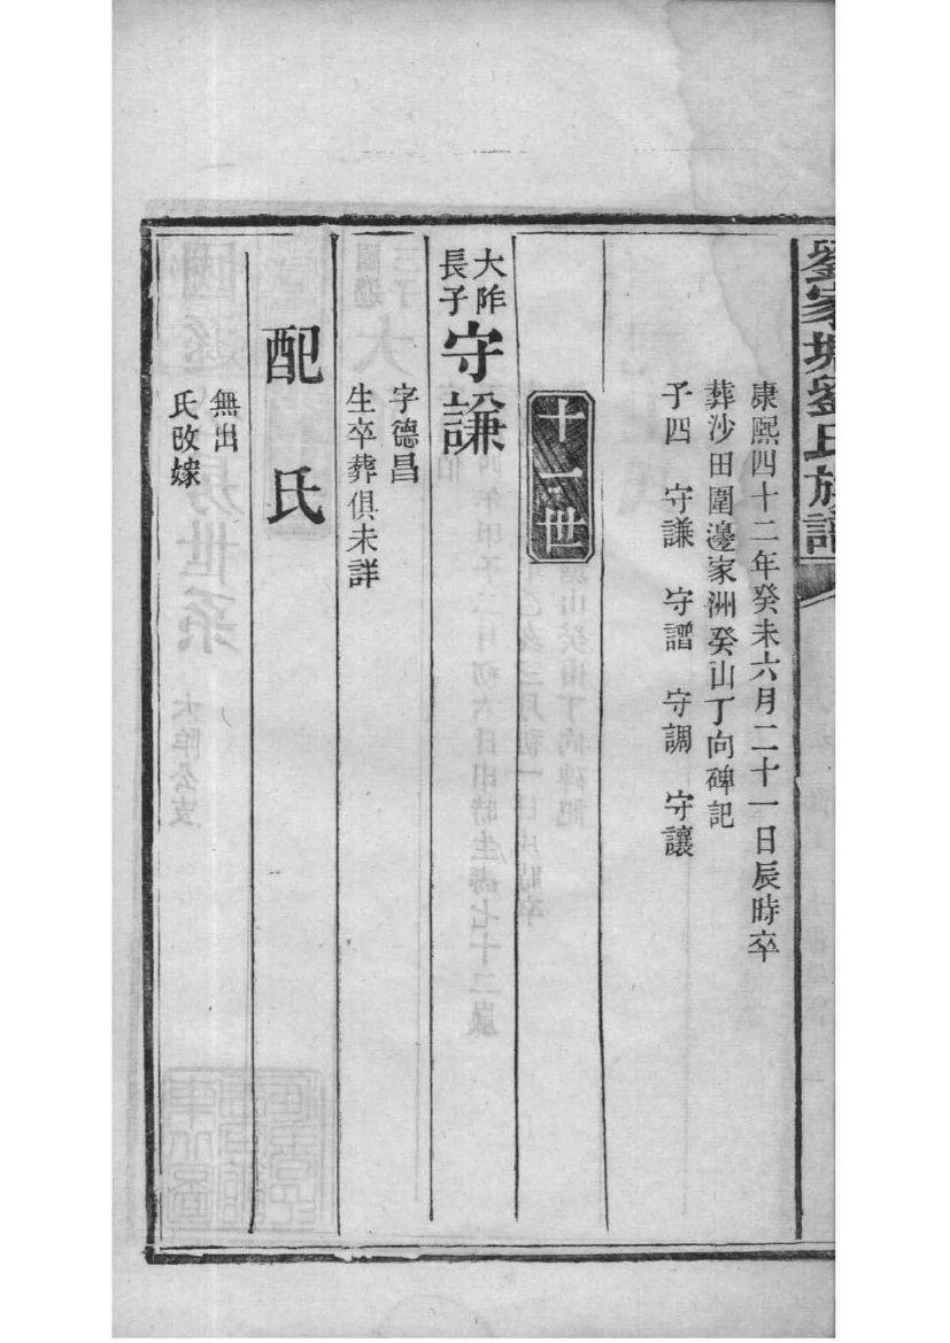 劉家塘劉氏族譜
康熙四十二年癸未六月二十一日辰時卒
葬沙田圍邊家洲癸山丁向碑記
子四　守謙　守譜　守調　守讓
十一世
大阼長子守謙
字德昌
生卒葬俱未詳
配氏
無出
氏改嫁